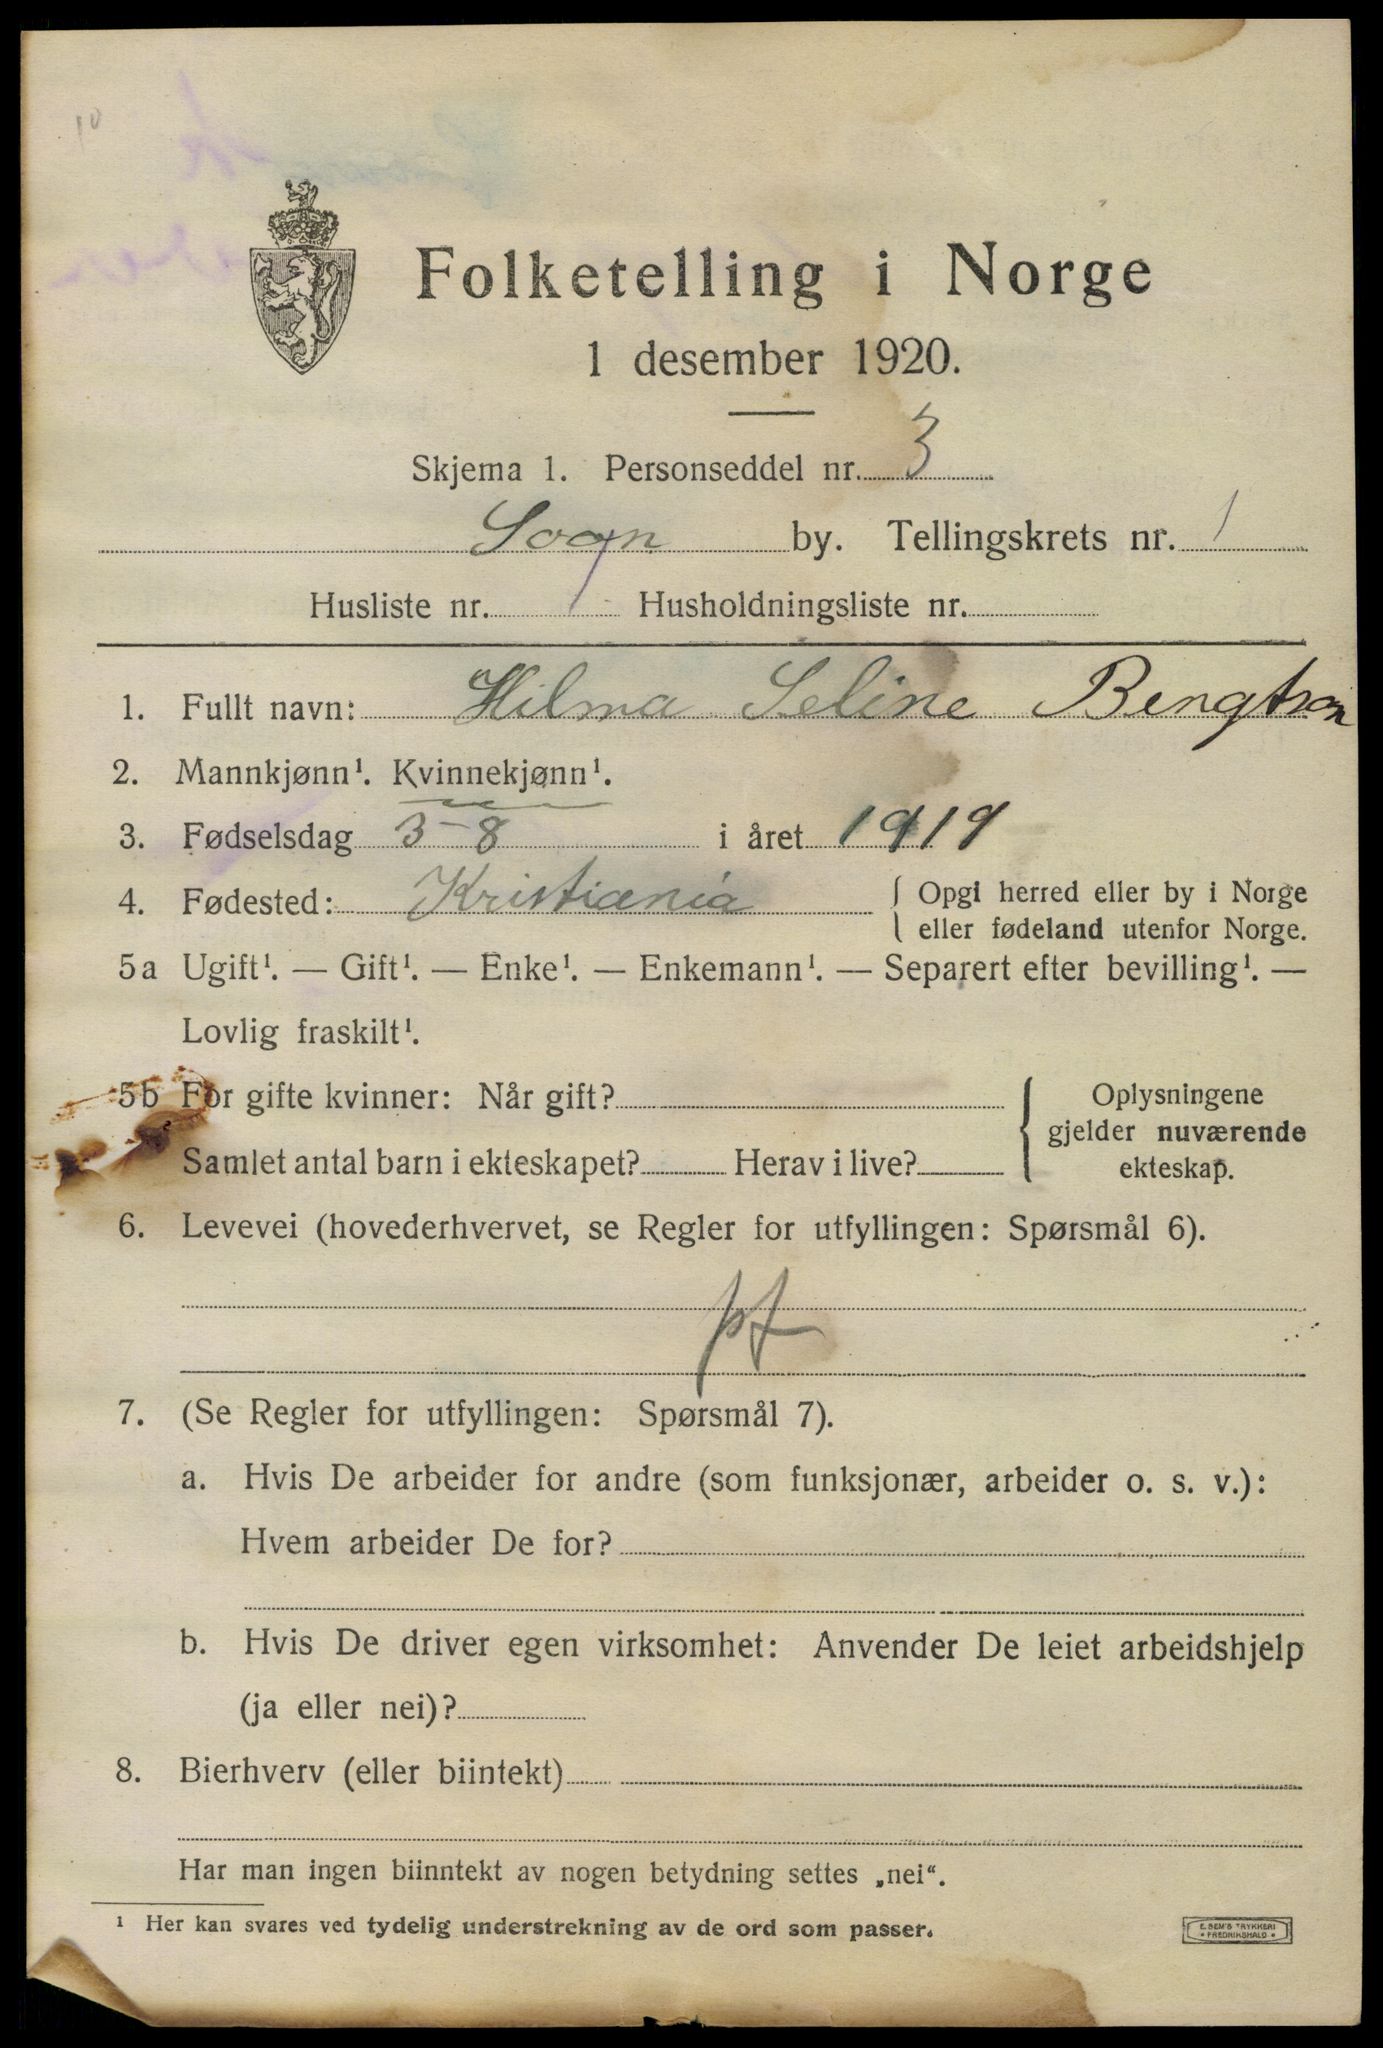 10
Folketelling i Norge
1 desember 1920.
Skjema 1. Personseddel nr. 3
Sogn by. Tellingskrets nr. 1
Husliste nr. 1 Husholdningsliste nr.
1. Fullt navn: Hilma Seline Bengtson
2. Mannkjønn¹. Kvinnekjønn¹.
3. Fødselsdag 3-8 i året 1919
4. Fødested: Kristiania { Opgi herred eller by i Norge
eller fødeland utenfor Norge.
5a Ugift¹. — Gift¹. — Enke¹. — Enkemann¹. — Separert efter bevilling¹. —
Lovlig fraskilt¹.
5b For gifte kvinner: Når gift?
Samlet antal barn i ekteskapet? Herav i live?
{ Oplysningene
gjelder nuværende
ekteskap.
6. Levevei (hovederhvervet, se Regler for utfyllingen: Spørsmål 6).
7. (Se Regler for utfyllingen: Spørsmål 7).
a. Hvis De arbeider for andre (som funksjonær, arbeider o. s. v.):
Hvem arbeider De for?
b. Hvis De driver egen virksomhet: Anvender De leiet arbeidshjelp
(ja eller nei)?
8. Bierhverv (eller biintekt)
Har man ingen biinntekt av nogen betydning settes „nei“.
¹ Her kan svares ved tydelig understrekning av de ord som passer.
E. SEM'S TRYKKERI
• FREDRIKSHALD •